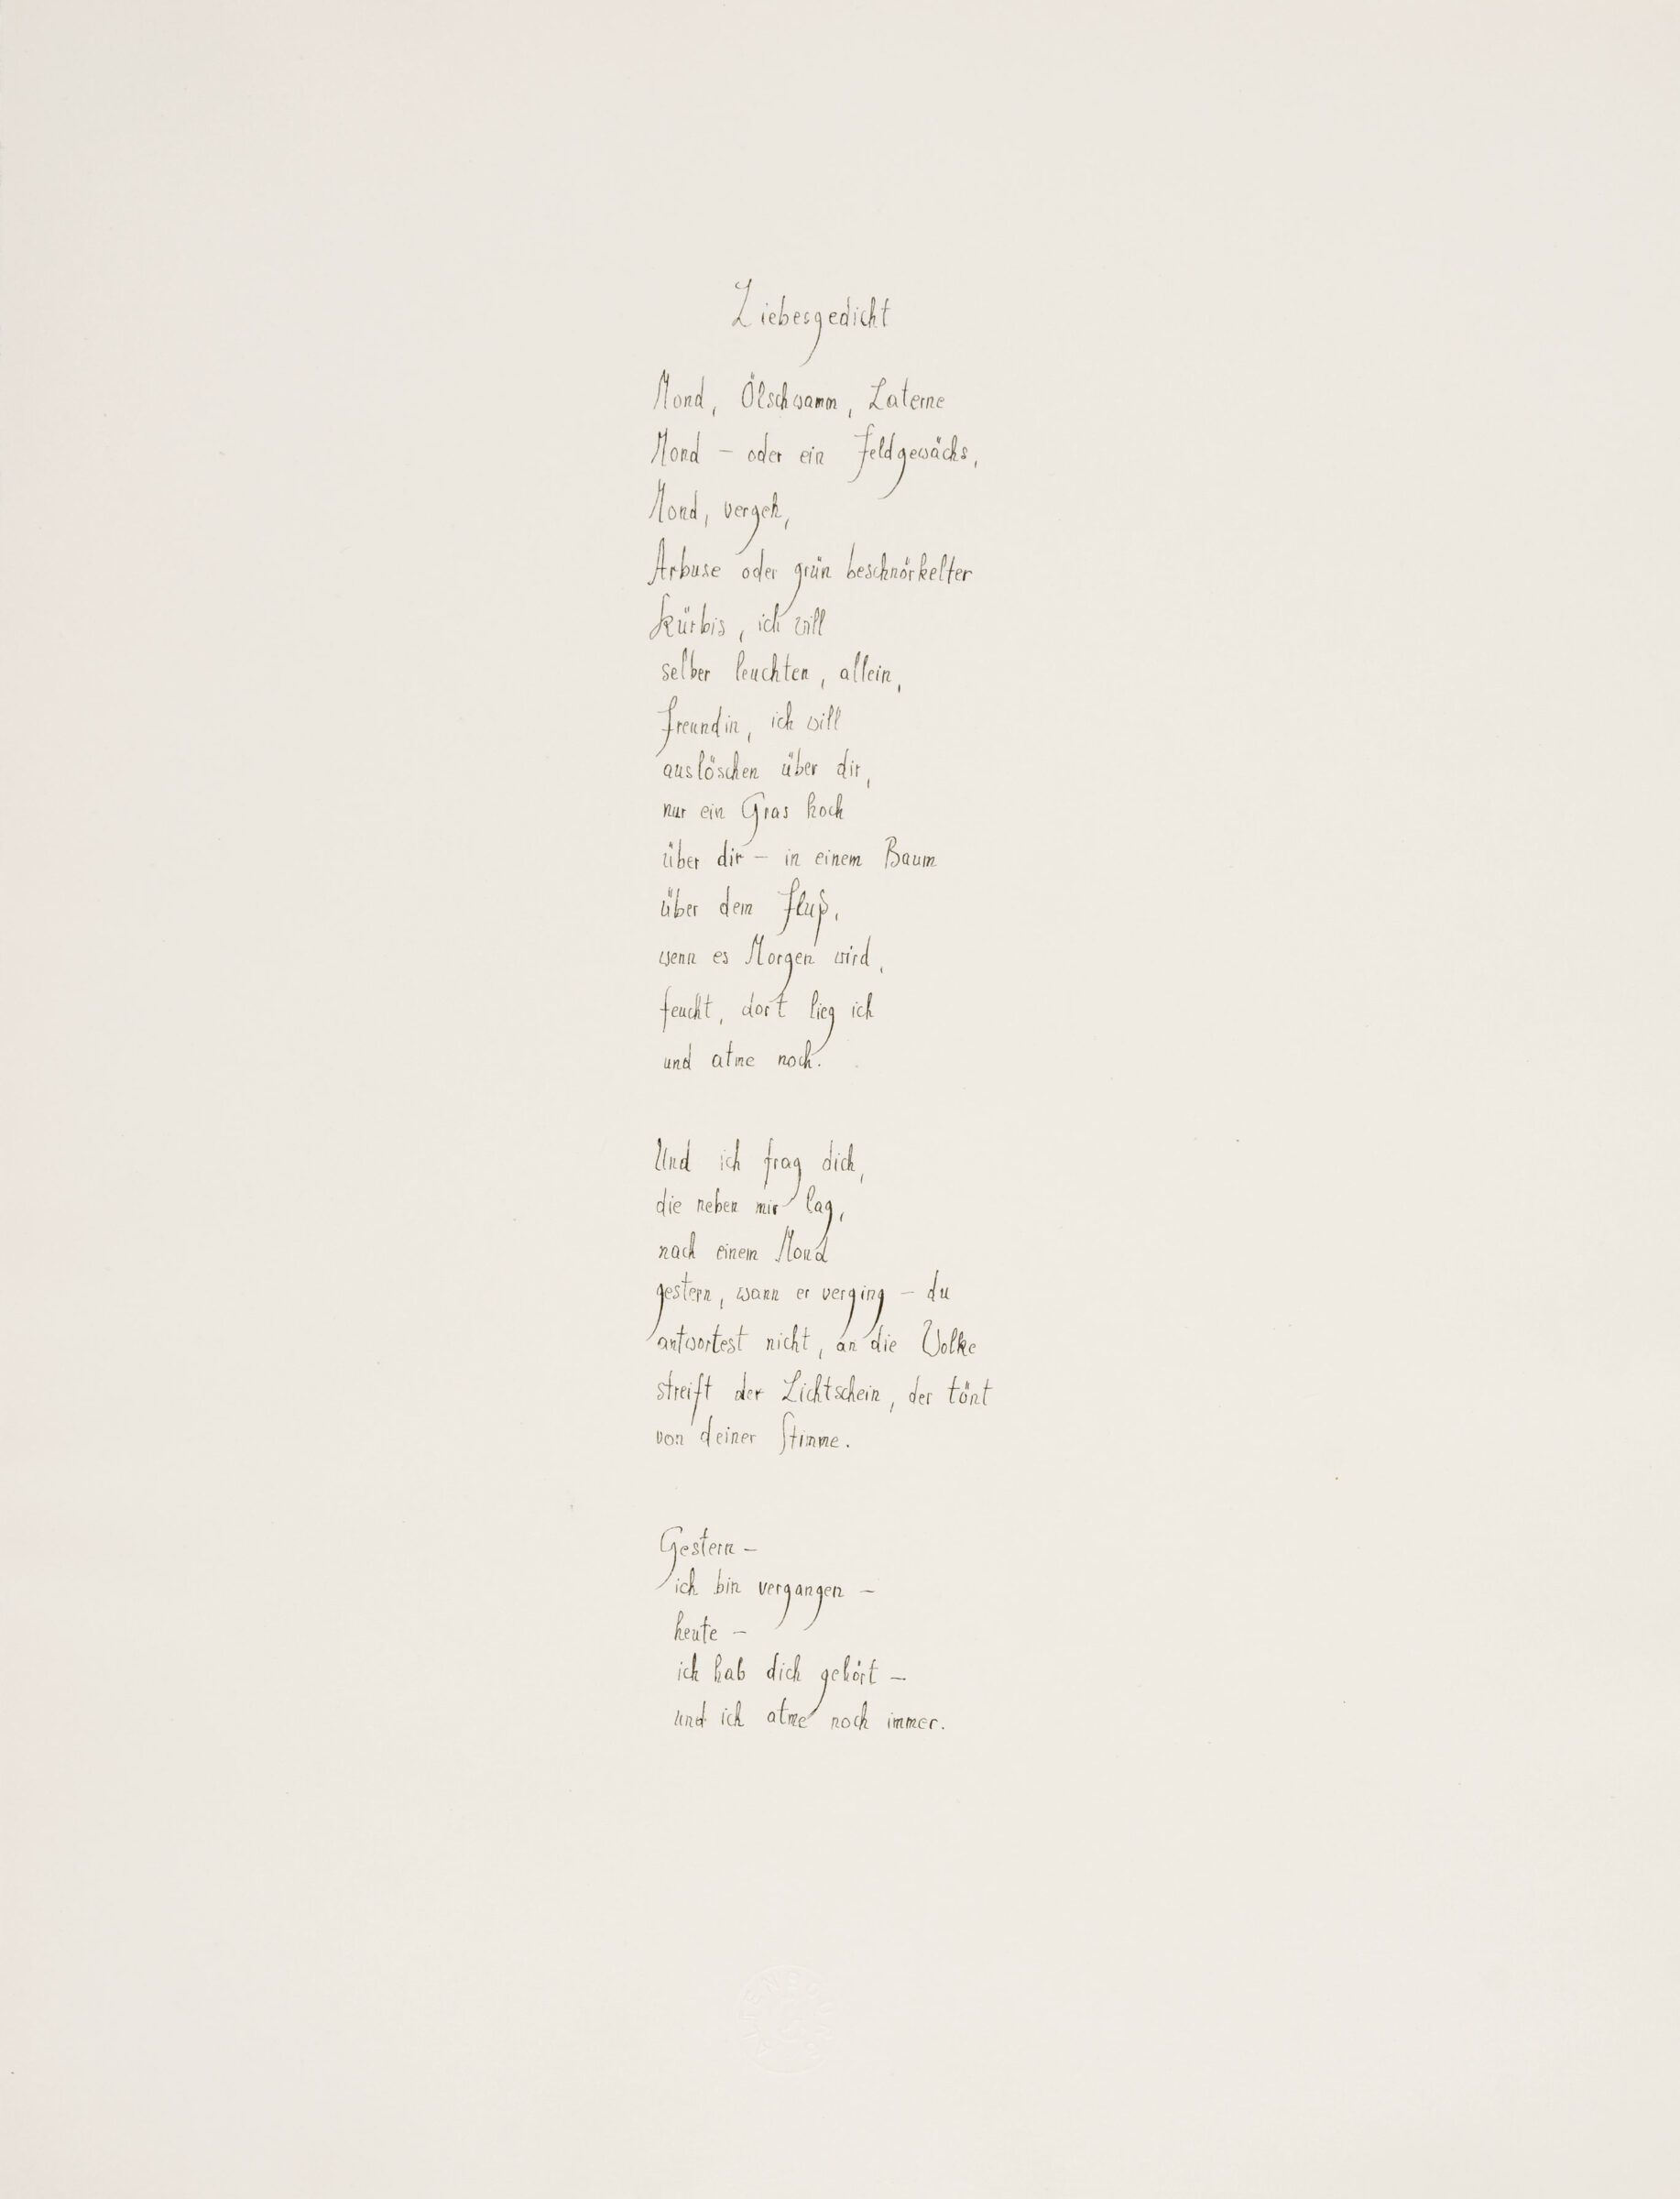 Liebesgedicht
Mond, Ölschwamm, Laterne
Mond – oder ein Feldgewächs,
Mond, vergeh,
Arbuse oder grün beschnörkelter
Kürbis, ich will
selber leuchten, allein,
Freundin, ich will
auslöschen über dir,
nur ein Gras hoch
über dir – in einem Baum
über dem Fluß,
wenn es Morgen wird,
feucht, dort lieg ich
und atme noch.
Und ich frag dich,
die neben mir lag,
nach einem Mond
gestern, wann er verging – du
antwortest nicht, an die Wolke
streift der Lichtschein, der tönt
von deiner Stimme.
Gestern –
ich bin vergangen –
heute –
ich hab dich gehört –
und ich atme noch immer.